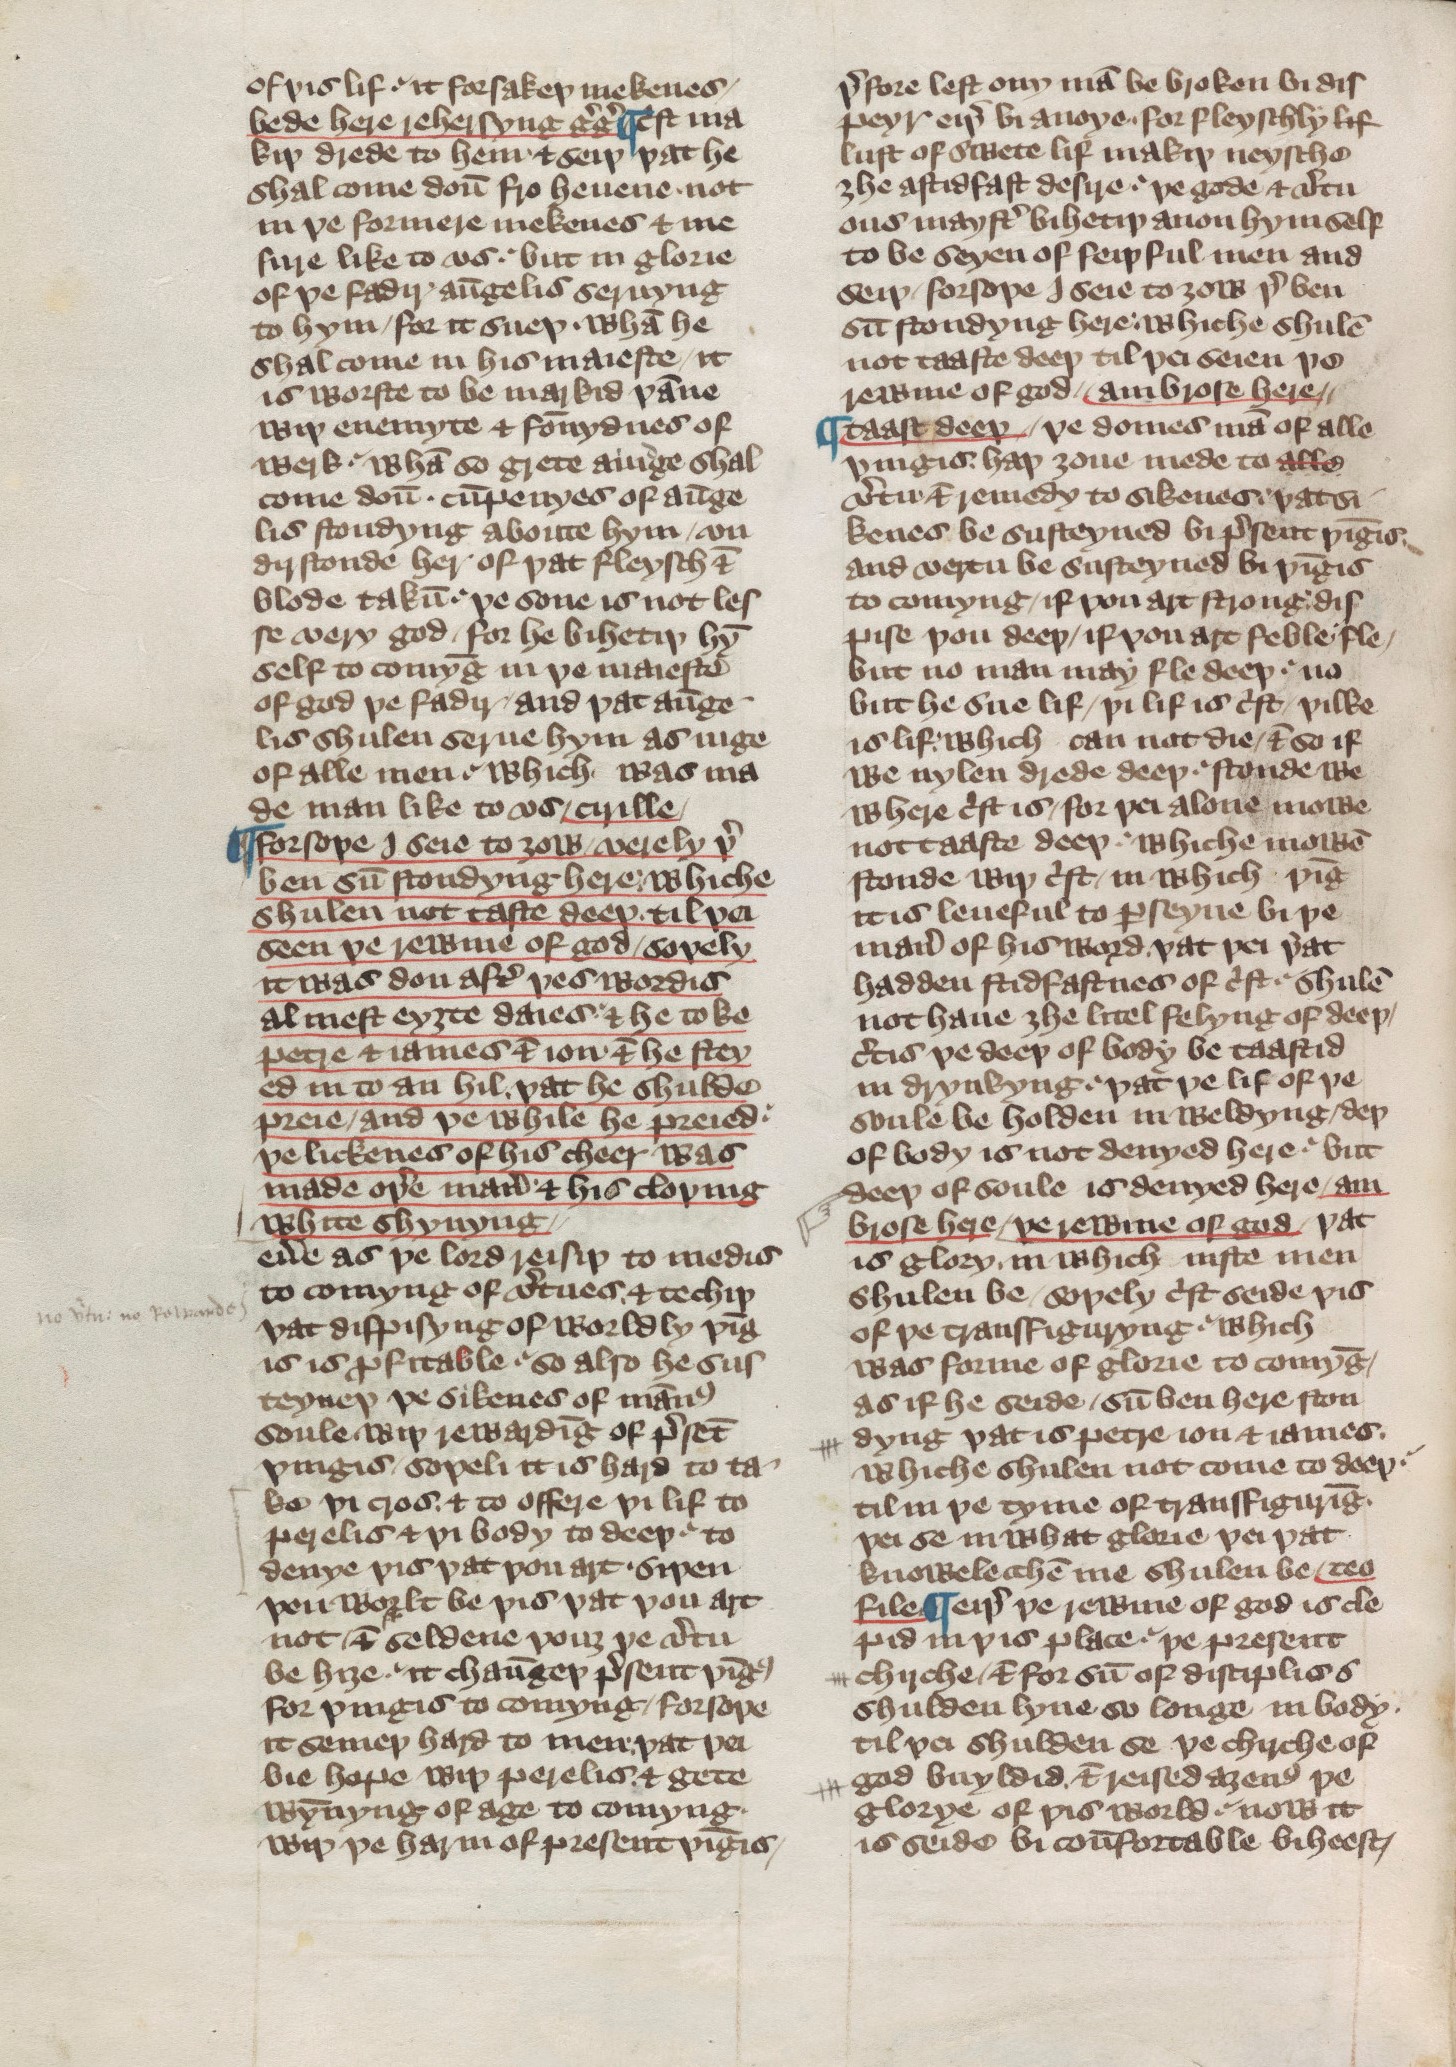 of þis lif · it forsakeþ mekenes /
bede here rehersyng g̉g̉ ¶ c̉st ma
kiþ drede to hem · & seiþ þat he
shal come doū fro heuene · not
in þe formere mekenes & me
sure like to vs · but in glorie
of þe fadir · aūgelis seruyng
to hym / for it sueþ · whā he
shal come in his maieste / it
is worste to be markid þāne
wiþ enemyte & fōnydnes of
werk · whā so grete a iuge shal
come doū · cūpenyes of aūge
lis stondyng aboute hym / vn
dirstonde her of þat fleysch &
blode takū · þe sone is not les
se very god / for he bihetiþ hȳ
self to comyḡ in þe maieste
of god þe fadir / and þat aūge
lis shulen serue hym as iuge
of alle men · which was ma
de man like to vs / cirille /
¶ forsoþe I seie to ȝow / verely þ̉
ben sū stondyng here · whiche
shulen not taste deeþ · til þei
seen þe rewme of god / soþely
it was don aft̉ þes wordis
almest eyȝte daies · & he toke
petre & iames & ion · & he stey
ed in to an hil · þat he shulde
preie / and þe while he preied ·
þe lickenes of his cheer was
made oþ̉e man̉ · & his cloþing
white shynyng //
eūe as þe lord reisiþ to medis
to comyng of v̉tues · & techiþ
þat dispisyng of worldly þīg
is is ꝓfitable · so also he sus
teyneþ þe sikenes of mānꝰ
soule wiþ rewardīg of p̉sēt
þingis / soþeli it is hard to ta
ke þi cros · & to offere þi lif to
perelis & þi body to deeþ · to
denye þis þat þou art · siþen
þou worlt be þis þat þou art
not / & seldene þouȝ þe v̉tu
be hiȝe · it chaūgeþ p̉sent þīgꝭ
for þingis to comyng / forsoþe
it semeþ hard to men · þat þei
bie hope wiþ perelis · & gete
wȳnyng of age to comyng ·
wiþ þe harm of present þīgis /
no v̉tu: no Rewarde
þ̉fore lest ony mā be broken bi dis
peyr eiþ̉ bi anoye · for fleyschly lif
lust of swete lif makiþ neysche
ȝhe a stidfast desire · þe gode & v̉tu
ous mayst̉ bihetiþ anon hym self
to be seyen of feiþful men and
seiþ / forsoþe I seie to ȝow þ̉ ben
sū stondyng here · whiche shulē
not taaste deeþ til þei seien þe
rewme of god / ambrose here //
¶ taast deeþ / þe domes mā of alle
þingis haþ ȝoue mede to alle
v̉tu · & remedy to sikenes · þat si
kenes be susteyned bi p̉sent þīgis ·
and vertu be susteyned bi þīgis
to comyng / if þou art strong · dis
pise þou deeþ / if þou art feble · fle /
but no man may fle deeþ · no
but he sue lif / þi lif is c̉st / þilke
is lif · which can not die / & so if
we nylen drede deeþ · stonde we
where c̉st is / for þei alone mowe
not taaste deeþ · whiche mowē
stonde wiþ c̉st / in which þīg
it is leueful to ꝑseyue bi þe
man̉ of his word · þat þei þ̉at
hadden stidfastnes of c̉st · shulē
not haue ȝhe litel felyng of deeþ /
c̉tis þe deeþ of body be taastid
in drynkyng · þat þe lif of þe
soule be holden in weldyng / deþ
of body is not denyed here · but
deeþ of soule is denyed here / am
brose here / þe rewme of god / þat
is glory · in which iuste men
shulen be / soþely c̉st seide þis
of þe transfiguryng · which
was forme of glorie to comyḡ /
as if he seide / sū ben here ston
dyng þat is petre ion & iames ·
whiche shulen not come to deeþ ·
til in þe tyme of transfigurīg ·
þei se in what glorie þei þat
knowelechē me shulen be / teo
file ¶ eiþ̉ þe rewme of god is cle
pid in þis place · þe present
chirche / & for sū of disciplis s
shulden lyue so longe in body ·
til þei shulden se þe chirche of
god buyldid · & reised aȝenꝰ þe
glorye of þis world · now it
is seide bi coūfortable biheest /